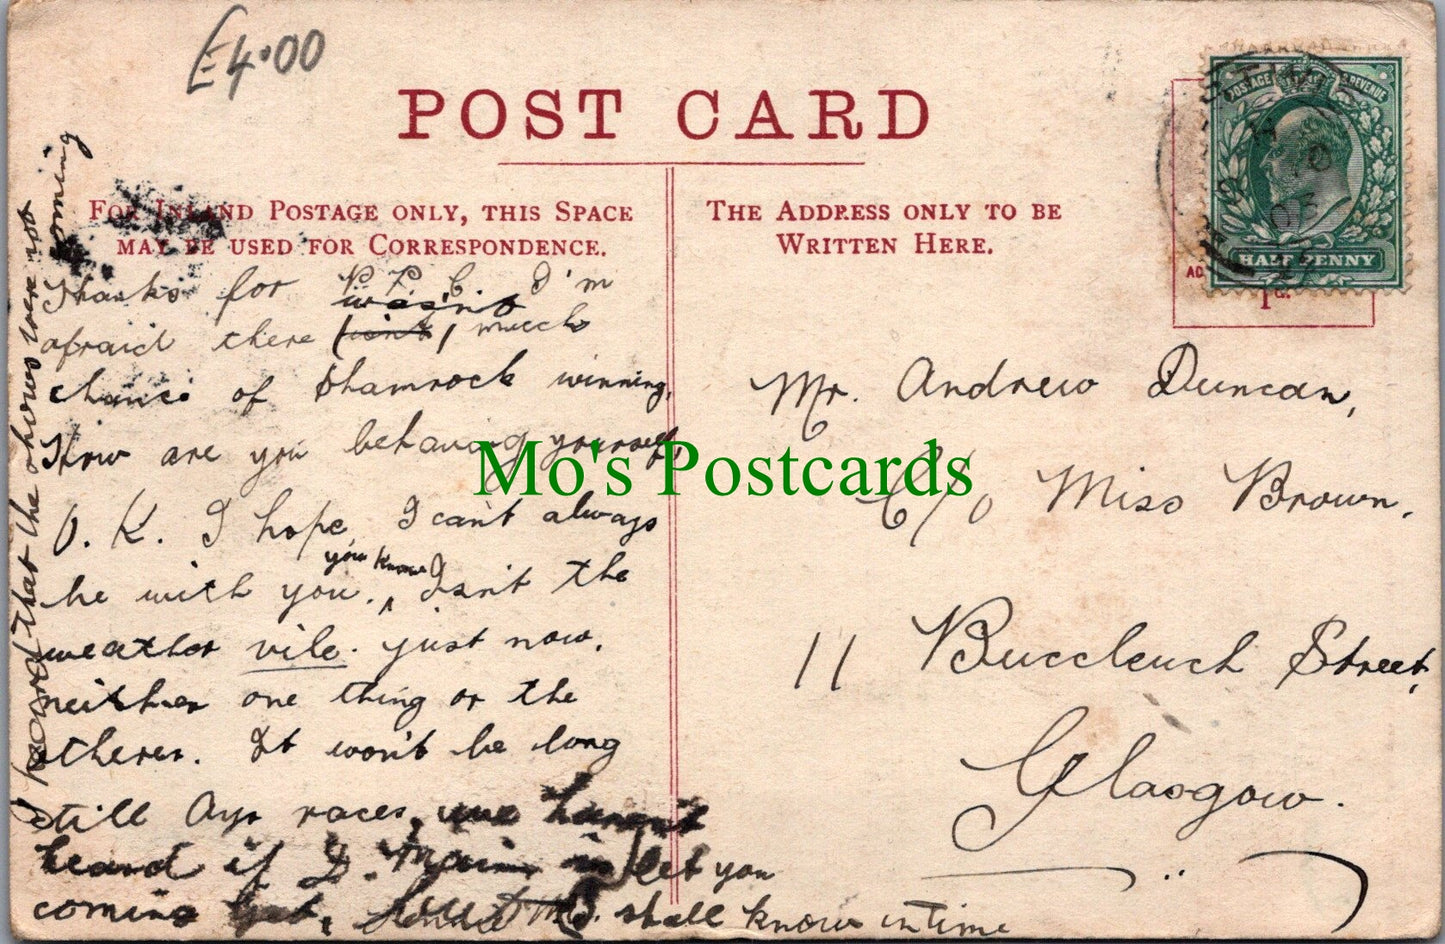 £4.00
POST CARD
FOR INLAND POSTAGE ONLY, THIS SPACE
MAY BE USED FOR CORRESPONDENCE.
THE ADDRESS ONLY TO BE
WRITTEN HERE.
POSTAGE REVENUE
HALF PENNY
1d.
Thanks for P. P. C. I'm
wasn't
afraid there (isn't) much
chance of Shamrock winning.
How are you behaving yourself,
O. K. I hope, I can't always
you know
be with you. ^ Isn't the
weather vile just now.
neither one thing or the
other. It won't be long
still Ayr races, we haven't
heard if D. let you
coming yet, shall know in time
I heard that the shows were not
coming
Mr. Andrew Duncan,
C/o Miss Brown.
11 Buccleuch Street,
Glasgow.
Mo's Postcards